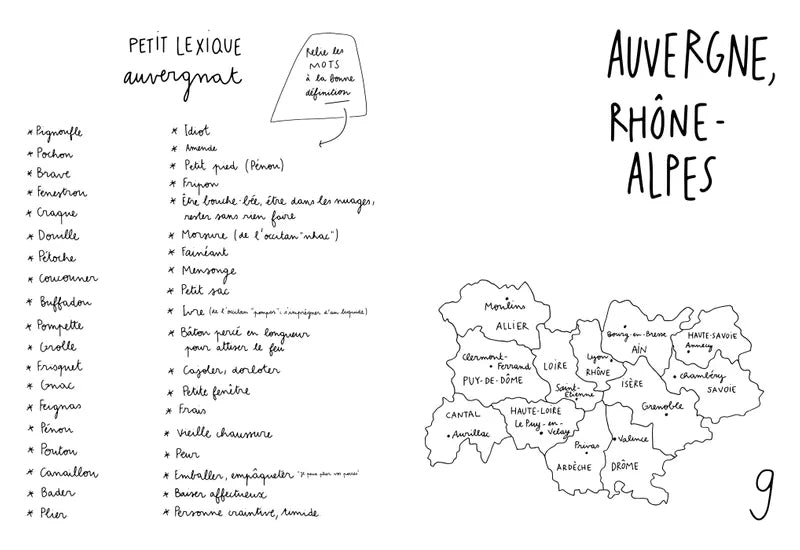 PETIT LEXIQUE
auvergnat
Relie les
MOTS
à la bonne
définition
* Pignoufle
* Pochon
* Brave
* Fenestrou
* Craque
* Douille
* Pétoche
* Coucouner
* Buffadou
* Pompette
* Grolle
* Frisquet
* Gnac
* Feignas
* Pénou
* Poutou
* Canaillou
* Bader
* Plier
* Idiot
* Amende
* Petit pied (Pénou)
* Fripon
* Être bouche-bée, être dans les nuages,
rester sans rien faire
* Morsure (de l'occitan "nhac")
* Fainéant
* Mensonge
* Petit sac
* Ivre (de l'occitan "pompar": s'imprégner d'un liquide)
* Bâton percé en longueur
pour attiser le feu
* Cajoler, dorloter
* Petite fenêtre
* Frais
* Vieille chaussure
* Peur
* Emballer, empâqueter "Je peux plier vos pommes"
* Baiser affectueux
* Personne craintive, timide
AUVERGNE,
RHÔNE-
ALPES
Moulins
ALLIER
Bourg-en-Bresse
AIN
HAUTE-SAVOIE
Annecy
Clermont-
Ferrand
PUY-DE-DÔME
LOIRE
Saint-
Etienne
Lyon
RHÔNE
ISÈRE
Grenoble
Chambéry
SAVOIE
CANTAL
Aurillac
HAUTE-LOIRE
Le Puy-en-
Velay
Privas
ARDÈCHE
Valence
DRÔME
9